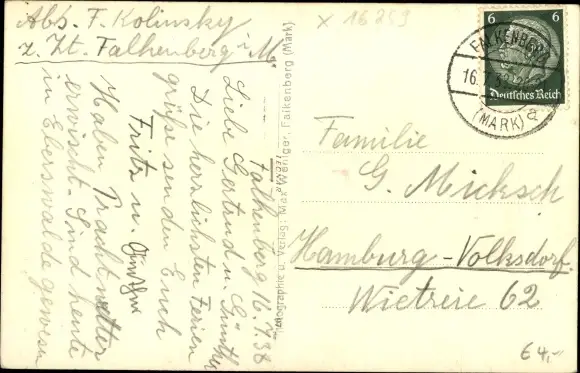 Abs. F. Kolinsky
z. Zt. Falkenberg i. M.
Falkenberg 16.7.38
Liebe Gertrud u. Günther
Die herzlichsten Ferien
grüße senden Euch
Fritz u.
Haben Prachtwetter
erwischt. Sind heute
in Eberswalde gewesen
Photographie u. Verlag: Max Weniger, Falkenberg (Mark)
X 16259
6 6
Deutsches Reich
FALKENBERG
16.7.3
(MARK) a
Familie
G. Micksch
Hamburg-Volksdorf
Wietreie 62
64,-